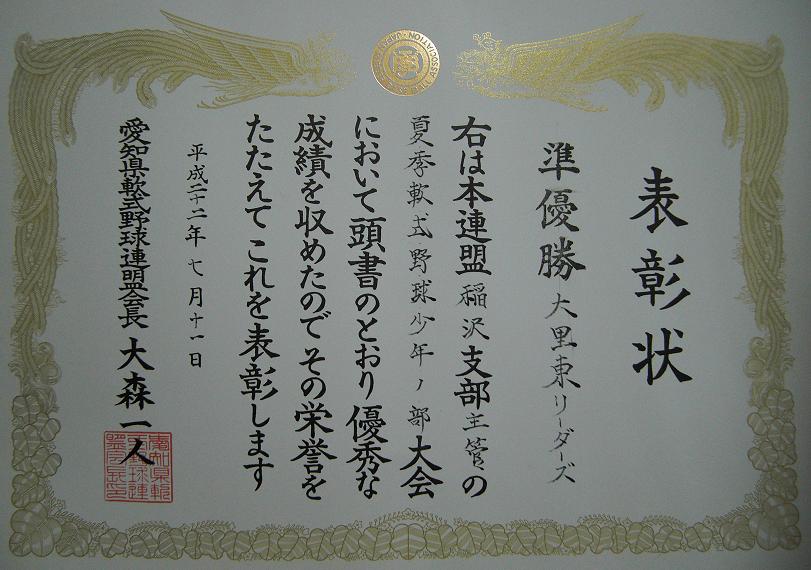 表彰状
準優勝 大里東リーダーズ
右は本連盟稲沢支部主管の
夏季軟式野球少年ノ部大会
において頭書のとおり優秀な
成績を収めたのでその栄誉を
たたえてこれを表彰します
平成二十二年七月十一日
愛知県軟式野球連盟会長 大森一人